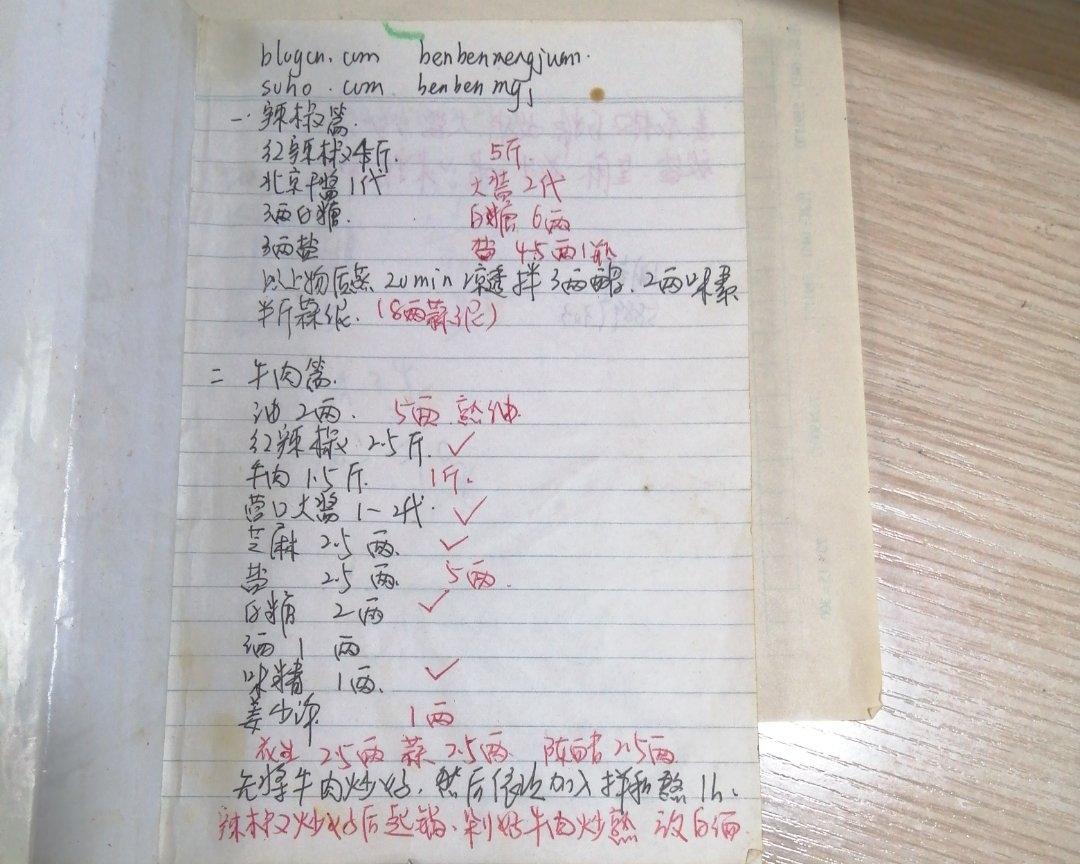 blogcn.com benbenmengjuan.
suho.com benbenmgj
一. 辣椒酱.
红辣椒4斤. 5斤
北京干酱1代 大酱2代
3两白糖. 白糖6两
3两盐 盐 4.5两1瓶
以上物后蒸20min凉透拌3两醋. 2两味素
半斤蒜泥. (8两蒜泥)
二 牛肉酱.
油2两. 5两 熟油.
红辣椒 2.5斤. ✓
牛肉1.5斤. 1斤.
营口大酱1-2代. ✓
芝麻 2.5两. ✓
盐 2.5两. 5两.
白糖 2两 ✓
酒1两
味精 1两. ✓
姜少许. 1两
花生 2.5两 蒜 2.5两 陈醋 2.5两
先将牛肉炒好. 然后依次加入拌和熬1h.
辣椒炒好后起锅. 剁好牛肉炒熟 放白酒